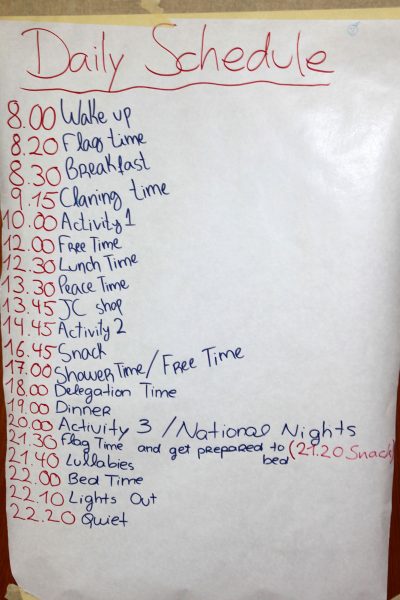 Daily Schedule
8.00 Wake up
8.20 Flag time
8.30 BREAKfAST
9.15 Claning time
10.00 Activity 1
12.00 Free Time
12.30 Lunch Time
13.30 Peace Time
13.45 JC shop
14.45 Activity 2
16.45 Snack
17.00 Shower Time / Free Time
18.00 Delegation Time
19.00 Dinner
20.00 Activity 3 / National Nights
21.30 Flag Time and get prepared to bed (21.20 Snack)
21.40 Lullabies
22.00 Bed Time
22.10 Lights Out
22.20 Quiet